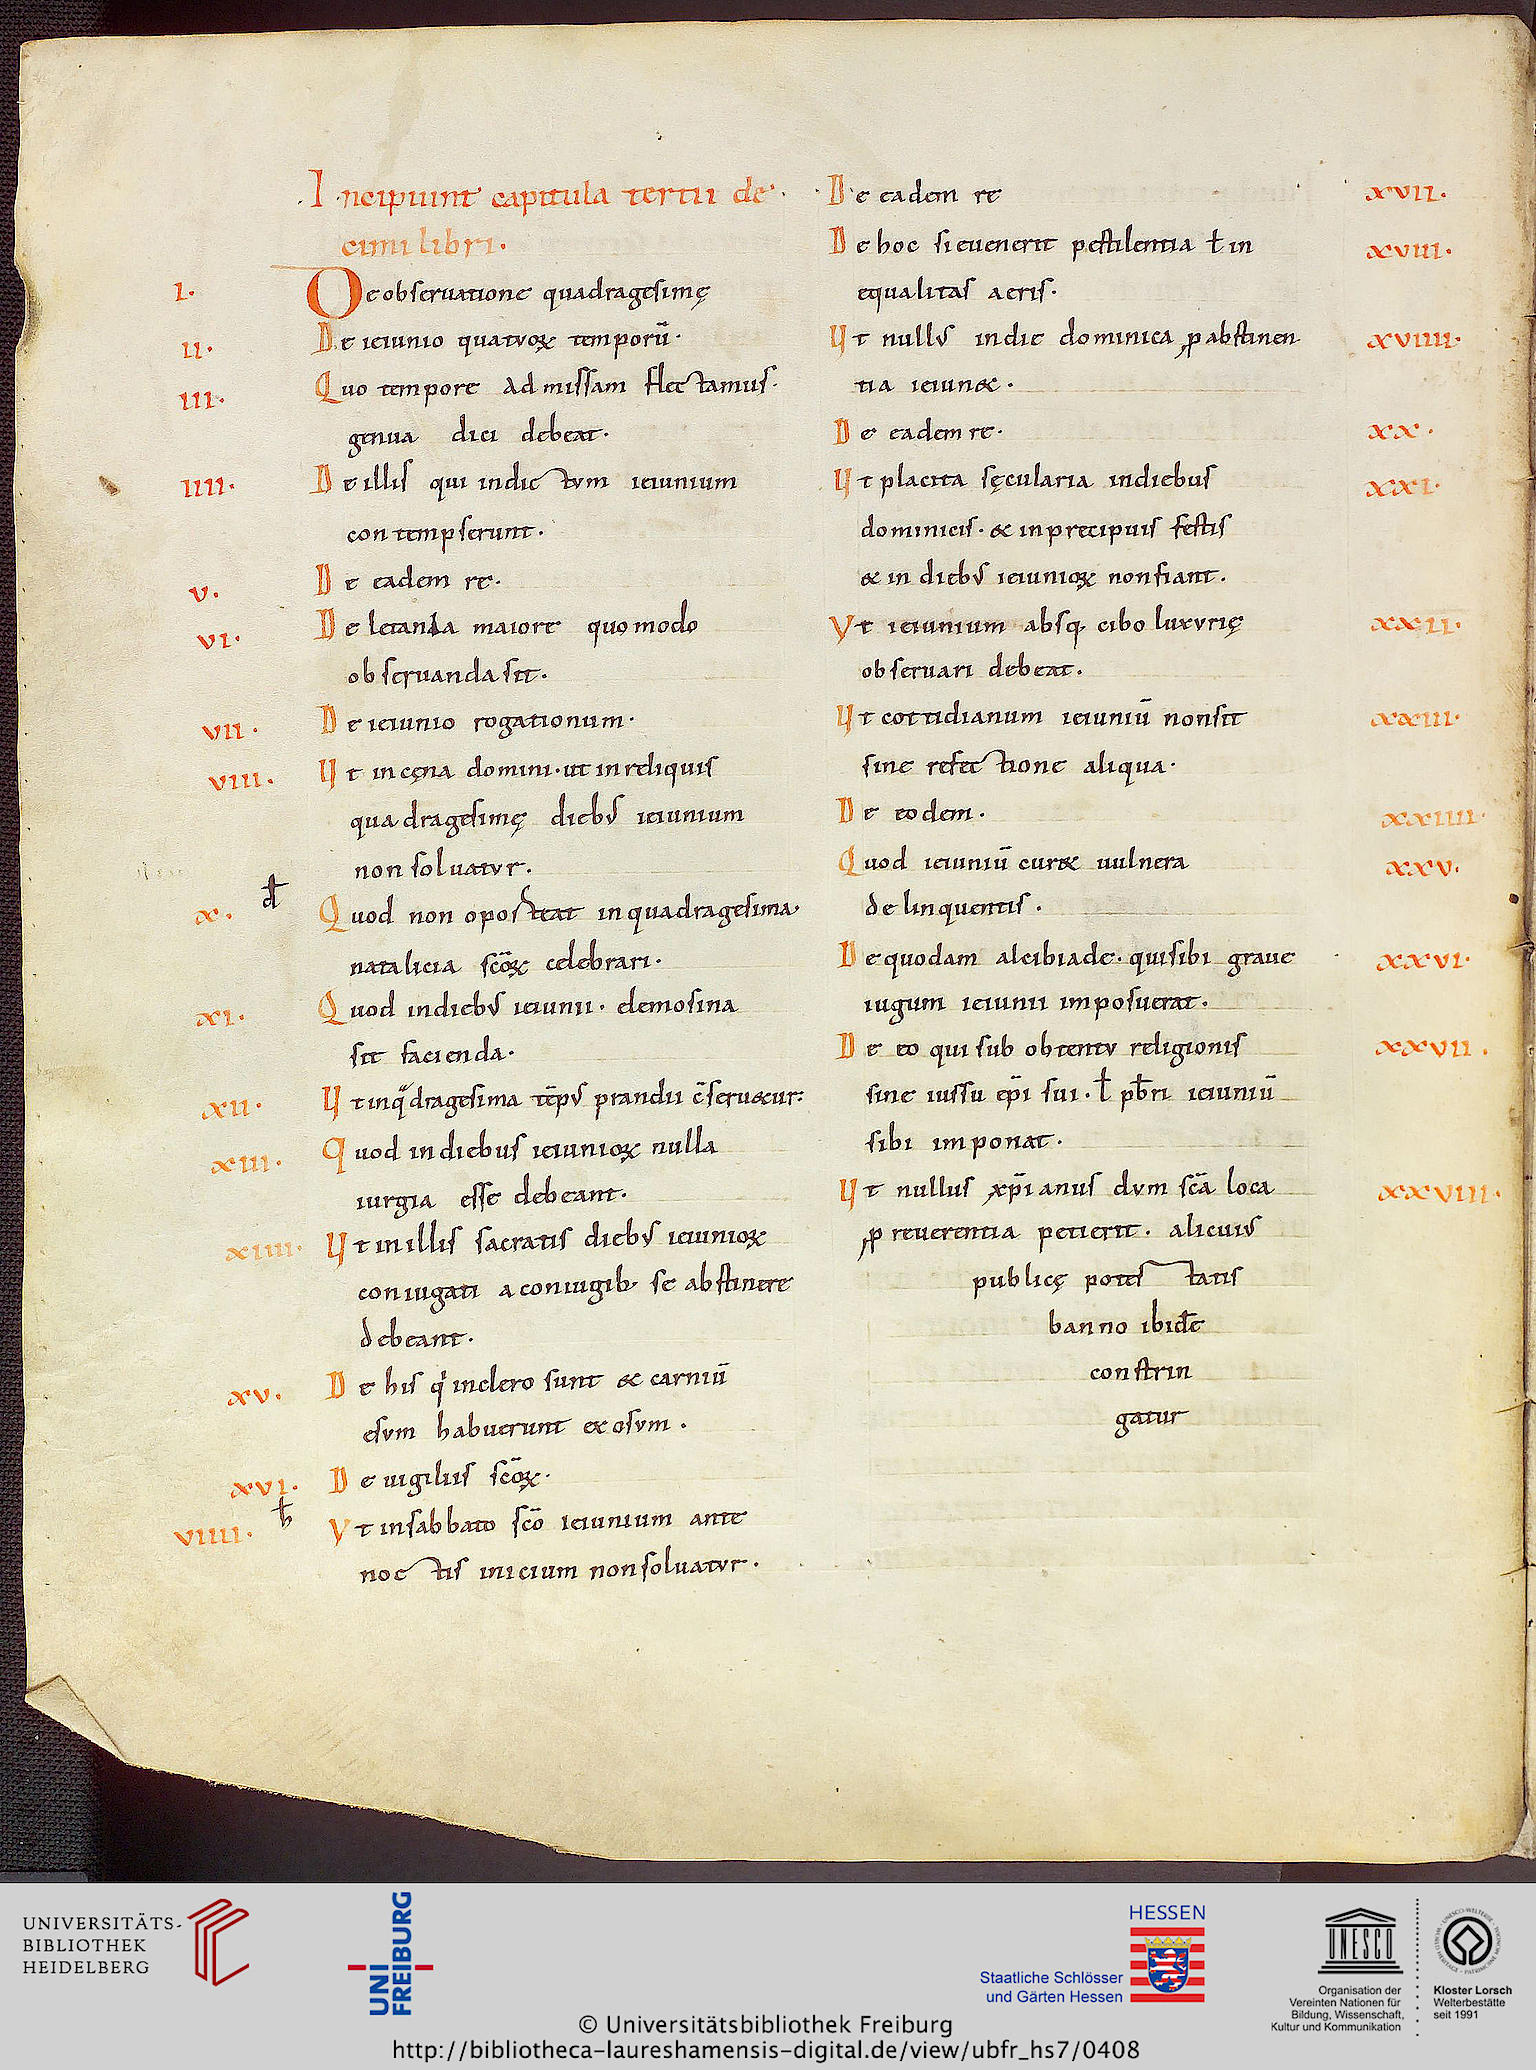 Incipiunt capitula tertii de
cimi libri.
I. De obseruatione quadragesimę
II. De ieiunio quatuoꝝ temporū.
III. Quo tempore ad missam flectamus
genua dici debeat.
IIII. De illis qui indictum ieiunium
contempserunt.
V. De eadem re.
VI. De letania maiore quomodo
obseruanda sit.
VII. De ieiunio rogationum.
VIII. Ut in cęna domini. ut in reliquis
quadragesimę diebus ieiunium
non soluatur.
X. đ Quod non oposteat in quadragesima
natalicia scōꝝ celebrari.
XI. Quod in diebus ieiunii. elemosina
sit facienda.
XII. Ut in qͣdragesima tēpus prandii c̄seruetur:
XIII. Quod in diebus ieiunioꝝ nulla
iurgia esse debeant.
XIIII. Ut in illis sacratis diebus ieiunioꝝ
coniugati a coniugib; se abstinere
debeant.
XV. De his qͥ in clero sunt & carniū
esum habuerunt exosum.
XVI. De uigiliis scōꝝ.
VIIII. ƀ Ut in sabbato scō ieiunium ante
noctis inicium non soluatur.
De eadem re XVII.
De hoc si euenerit pestilentia ł in XVIII.
equalitas aeris.
Ut nullus in die dominica ꝓ abstinen XVIIII.
tia ieiunet.
De eadem re. XX.
Ut placita sęcularia in diebus XXI.
dominicis. & in precipuis festis
& in diebus ieiunioꝝ non fiant.
Ut ieiunium absq; cibo luxurię XXII.
obseruari debeat.
Ut cottidianum ieiuniū non sit XXIII.
sine refectione aliqua.
De eodem. XXIIII.
Quod ieiuniū curet uulnera XXV.
delinquentis.
De quodam alcibiade. qui sibi graue XXVI.
iugum ieiunii imposuerat.
De eo qui sub obtentu religionis XXVII.
sine iussu ep̄i sui. ł pƀri ieiuniū
sibi imponat.
Ut nullus xp̄ianus dum scā loca XXVIII.
ꝓ reuerentia petierit. alicuius
publicę potestatis
banno ibidē
constrin
gatur
UNIVERSITÄTS-
BIBLIOTHEK
HEIDELBERG
UNI
FREIBURG
HESSEN
Staatliche Schlösser
und Gärten Hessen
UNESCO
Organisation der
Vereinten Nationen für
Bildung, Wissenschaft,
Kultur und Kommunikation
Kloster Lorsch
Welterbestätte
seit 1991
© Universitätsbibliothek Freiburg
http://bibliotheca-laureshamensis-digital.de/view/ubfr_hs7/0408